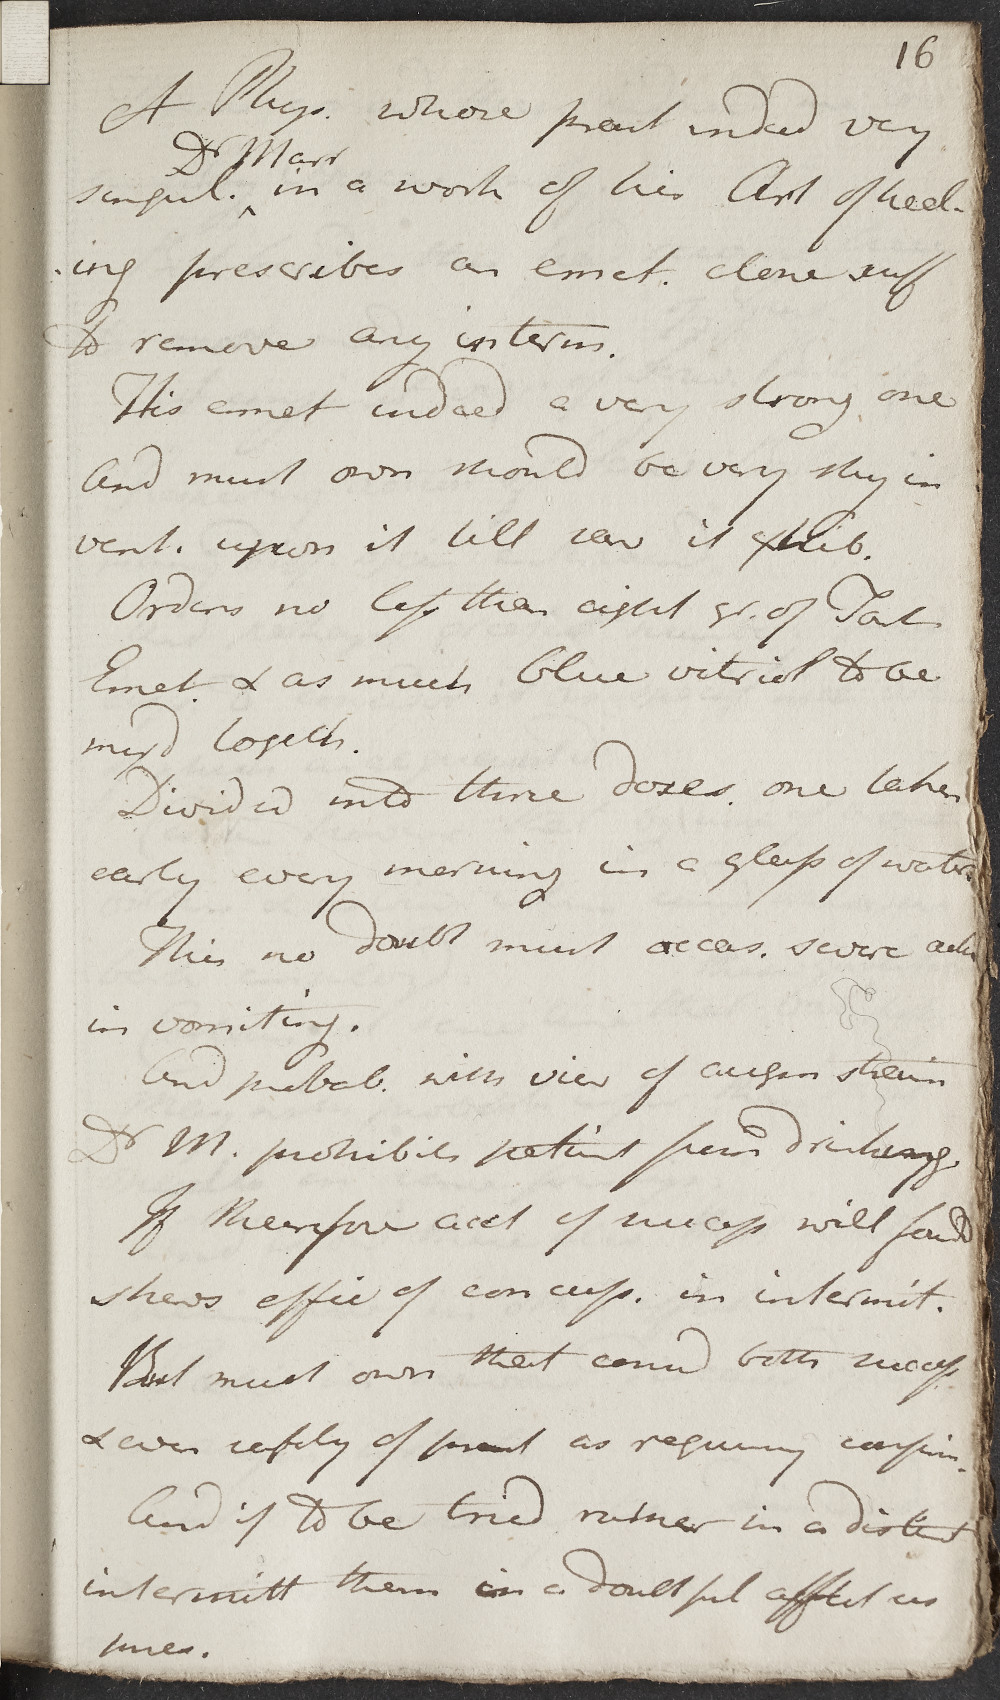 16
A Phys. whose pract indeed very
Dr Marr
singul. ^ in a work of his Art of heal-
-ing prescribes an emet. alone suff
to remove any interm.
This emet indeed a very strong one
And must own should be very shy in
vent. upon it till saw it exhib.
Orders no less than eight gr. of Tart
Emet. & as much blue vitriol to be
mix'd togeth.
Divided into three doses. one taken
early every morning in a glass of water.
This no doubt must occas. severe actn
in vomiting.
And probab. with view of augm strain
Dr M. prohibits patient from drinking.
If therefore acct of success well found
shews effic of concuss. in intermit.
But must own that consid both success
& even safety of pract as requiring confirm.
And if to be tried rather in a distinct
intermitt them in a doubtful as